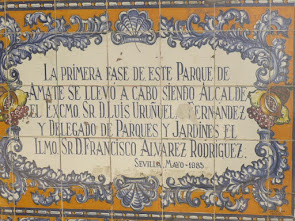 LA PRIMERA FASE DE ESTE PARQUE DE
AMATE SE LLEVÓ A CABO SIENDO ALCALDE
EL EXCMO. SR. D. LUIS URUÑUELA FERNANDEZ
Y DELEGADO DE PARQUES Y JARDINES EL
ILMO. SR. D. FRANCISCO ALVAREZ RODRÍGUEZ.
SEVILLA, MAYO - 1983.